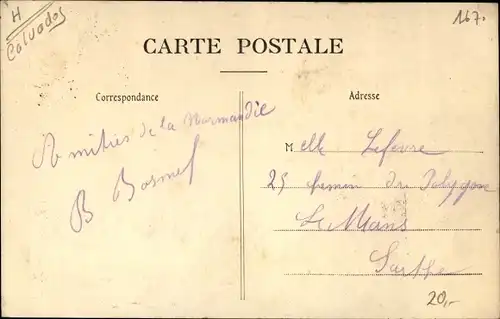 H
Calvados
167.
CARTE POSTALE
Correspondance
Adresse
Amitiés de la Normandie
B
Melle Lefevre
25 Chemin du Polygone
Le Mans
Sarthe
20,-